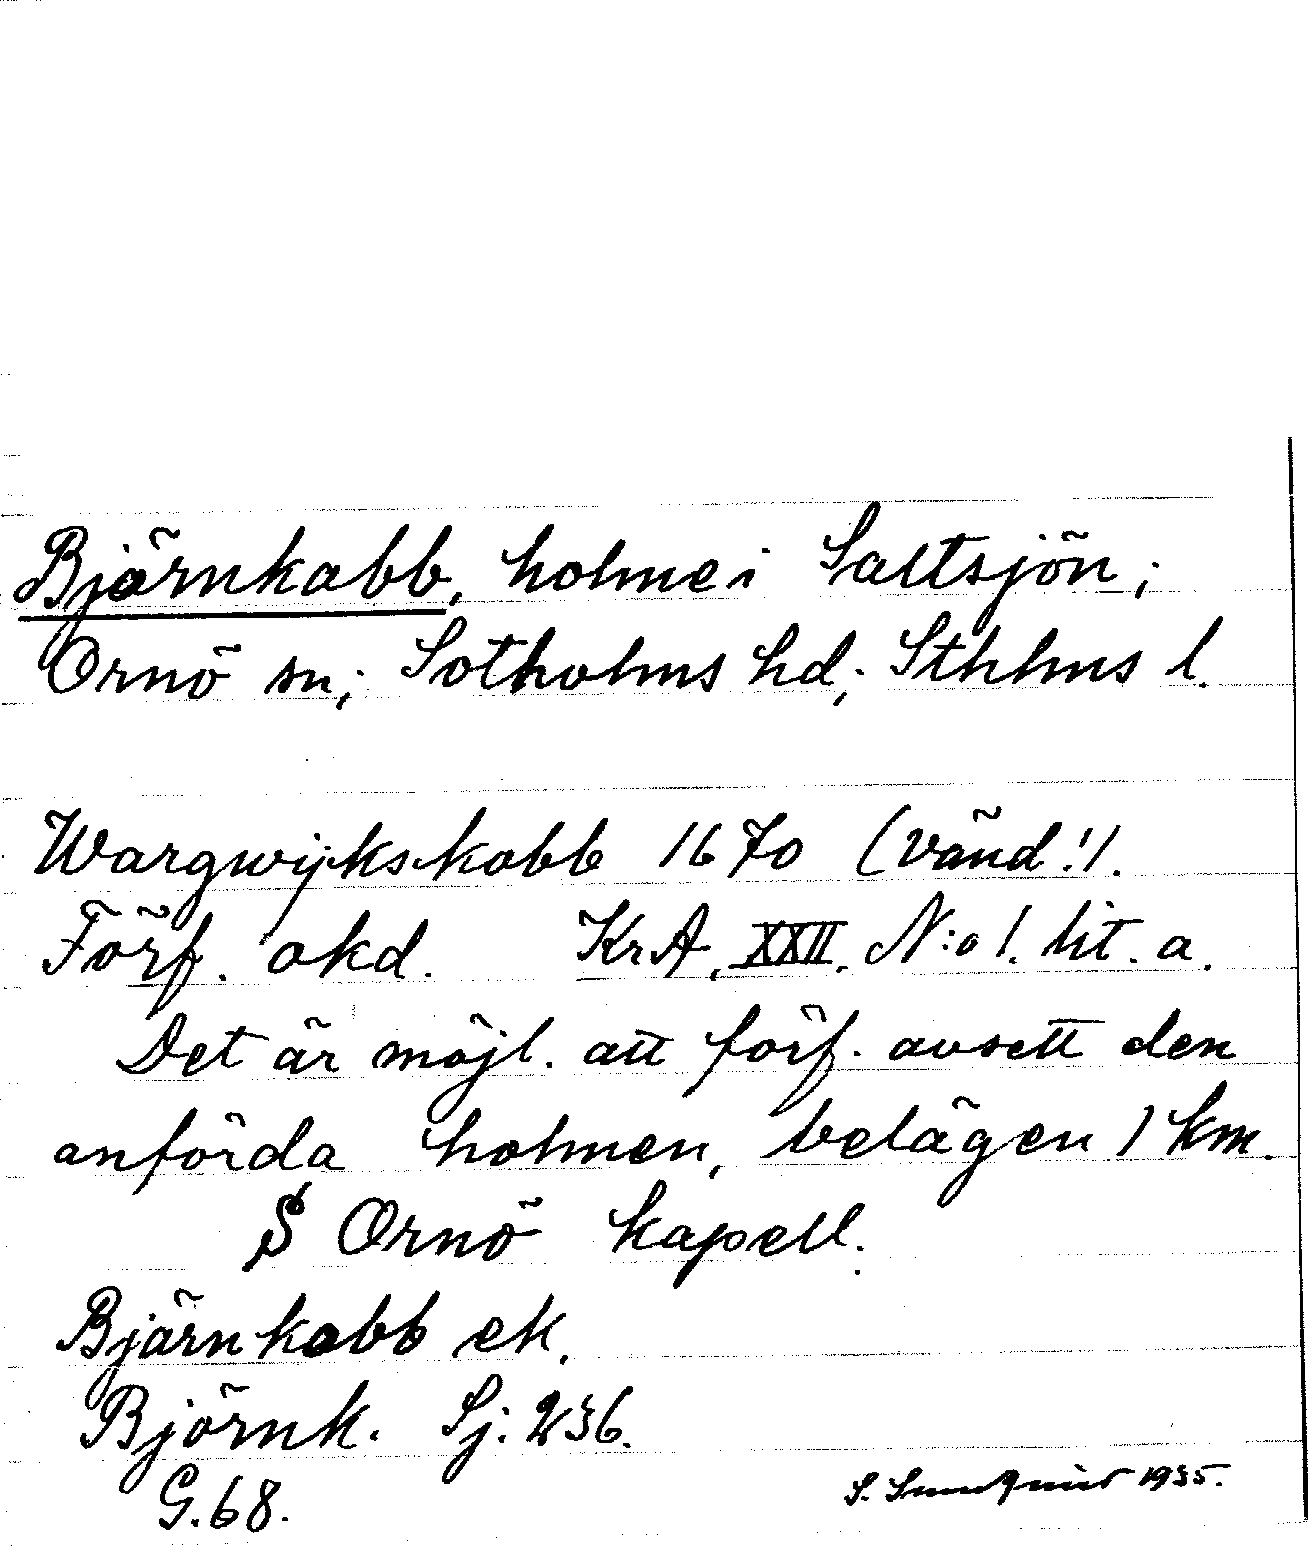 Bjärnkabb, holme i Saltsjön;
Ornö sn; Sotholms hd; Sthlms l.
Wargwijkskobb 1670 (vänd!).
Förf. okd. KrA, XXII, N:o 1. lit. a.
Det är möjl. att förf. avsett den
anförda holmen, belägen 1 km.
S Ornö kapell.
Bjärnkobb ek.
Björnk. Sj: 236.
G. 68.
S. 1935.